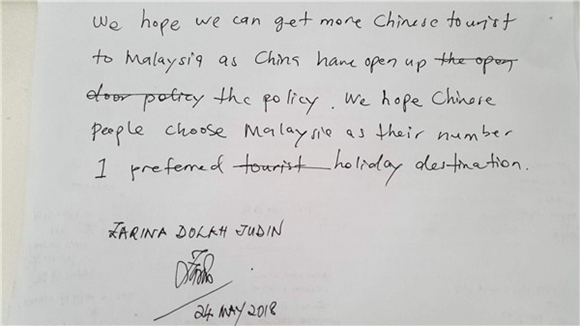 We hope we can get more Chinese tourist
to Malaysia as China have open up the open
door policy the policy. We hope Chinese
people choose Malaysia as their number
1 preferred tourist holiday destination.
ZARINA DOLAH JUDIN
24 MAY 2018